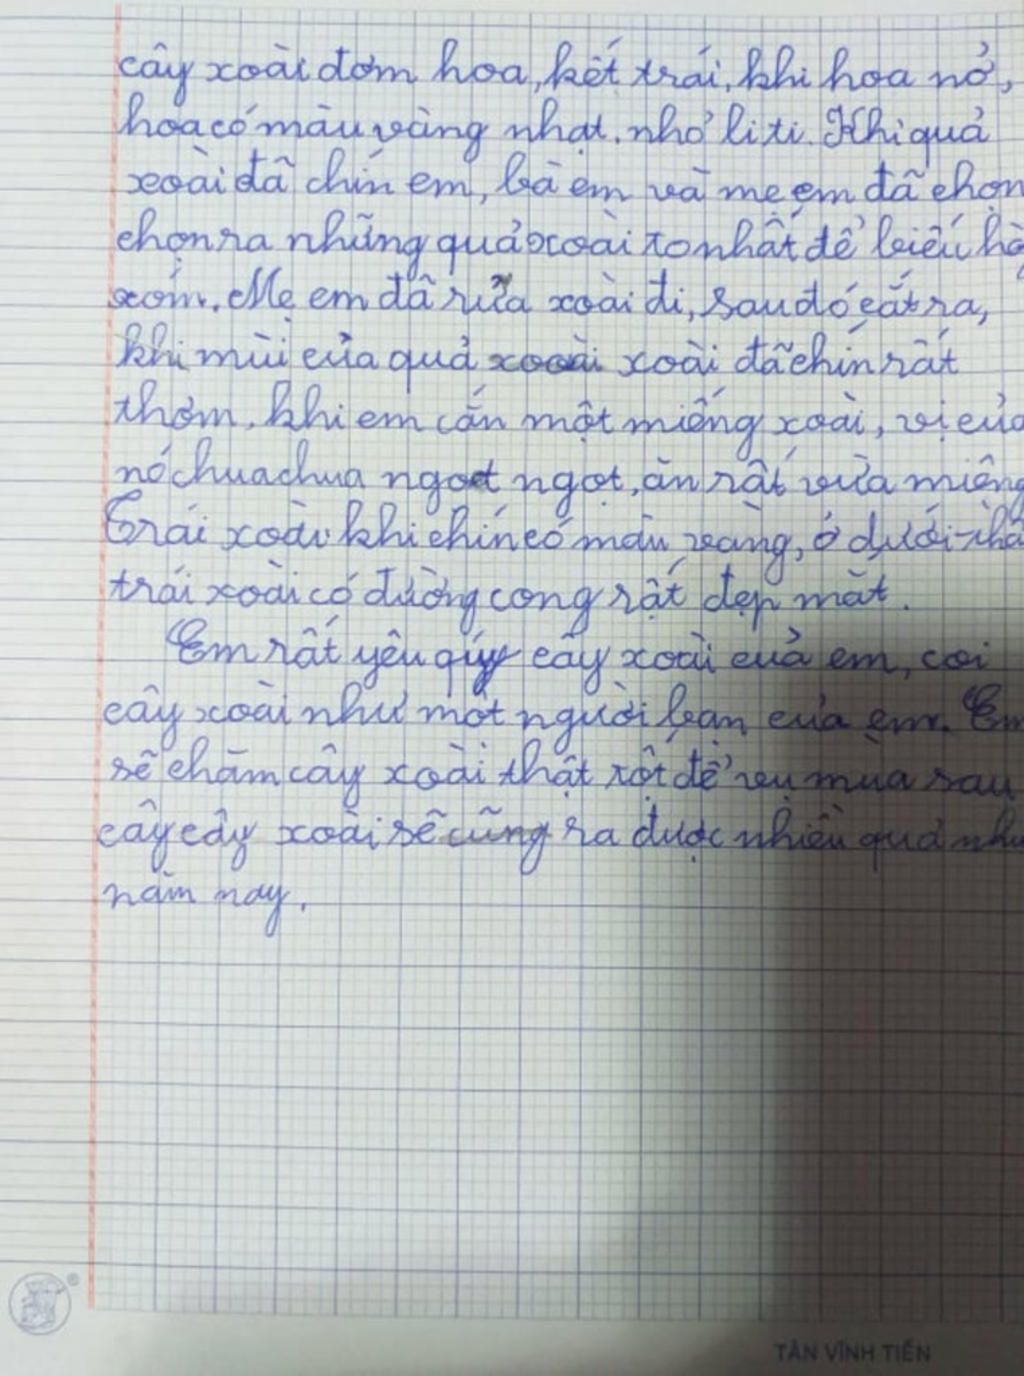 cây xoài đơm hoa, kết trái, khi hoa nở,
hoa có màu vàng nhạt, nhỏ li ti. Khi quả
xoài đã chín em, bà em và mẹ em đã chọn
chọn ra những quả xoài to nhất để biếu hà
xóm. Mẹ em đã rửa xoài đi, sau đó cắt ra,
khi mùi của quả xoài đã chín rất
thơm, khi em cắn một miếng xoài, vị của
nó chua chua ngọt ngọt, ăn rất vừa miệng
Trái xoài khi chín có màu vàng, ở dưới
trái xoài có đường cong rất đẹp mắt.
Em rất yêu quý cây xoài của em, coi
cây xoài như một người bạn của em. Em
sẽ chăm cây xoài thật tốt để vụ mùa sau
cây cây xoài sẽ cũng ra được nhiều quả như
năm nay.
TÂN VĨNH TIẾN